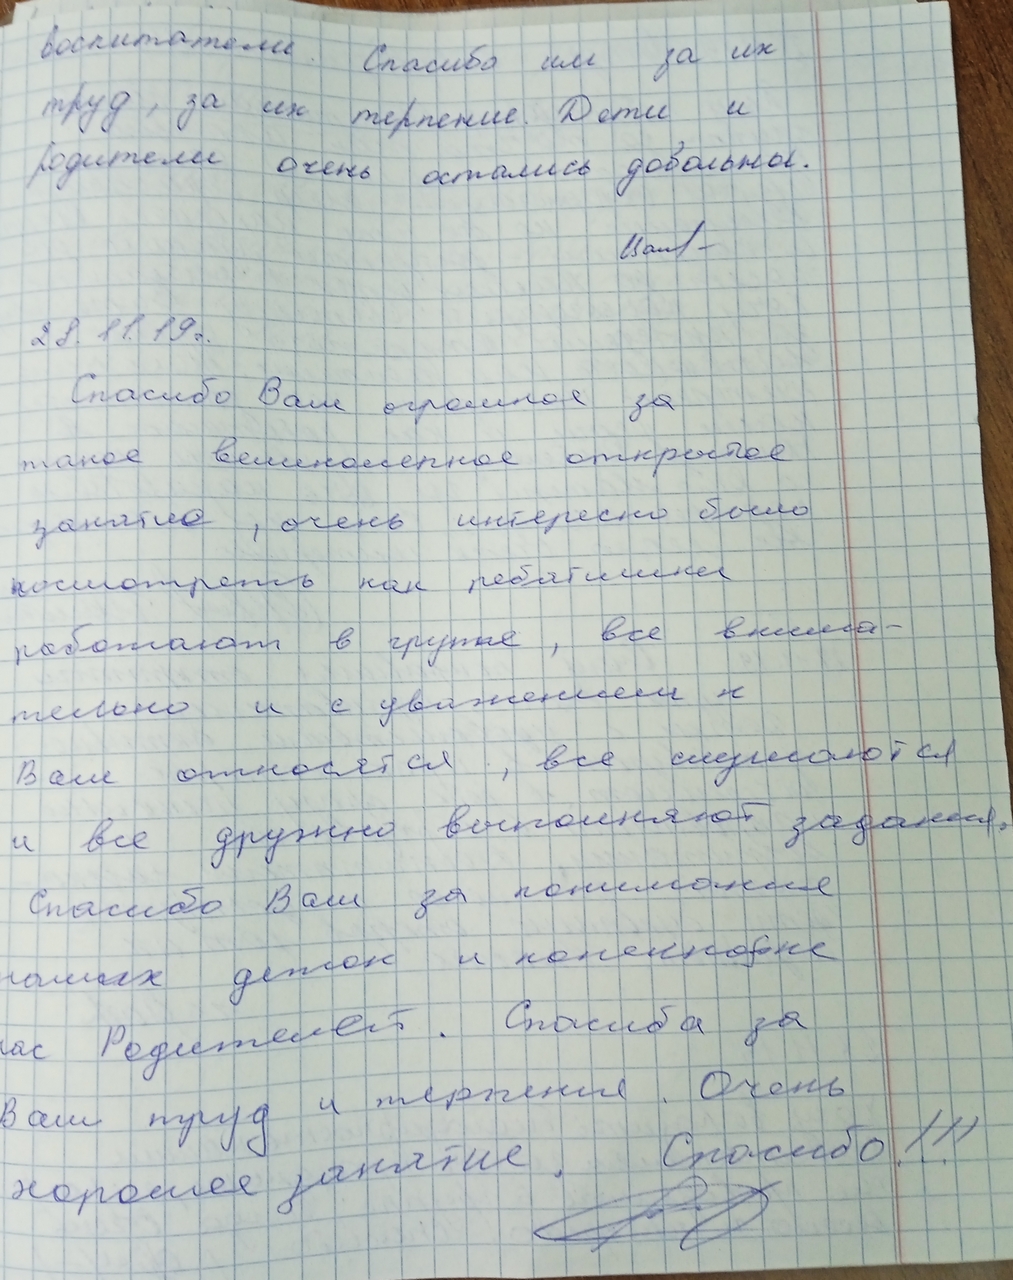 воспитатели. Спасибо им за их
труд, за их терпение. Дети и
родители очень остались довольны.
28.11.19г.
Спасибо Вам огромное за
такое великолепное открытое
занятие, очень интересно было
посмотреть как ребятишки
работают в групе, все внима-
тельно и с уважением к
Вам относятся, все слушаются
и все дружно выполняют задания.
Спасибо Вам за понимание
наших деток и конечно же
нас Родителей. Спасиба за
Ваш труд и терпения. Очень
хорошее занятие. Спасибо!!!